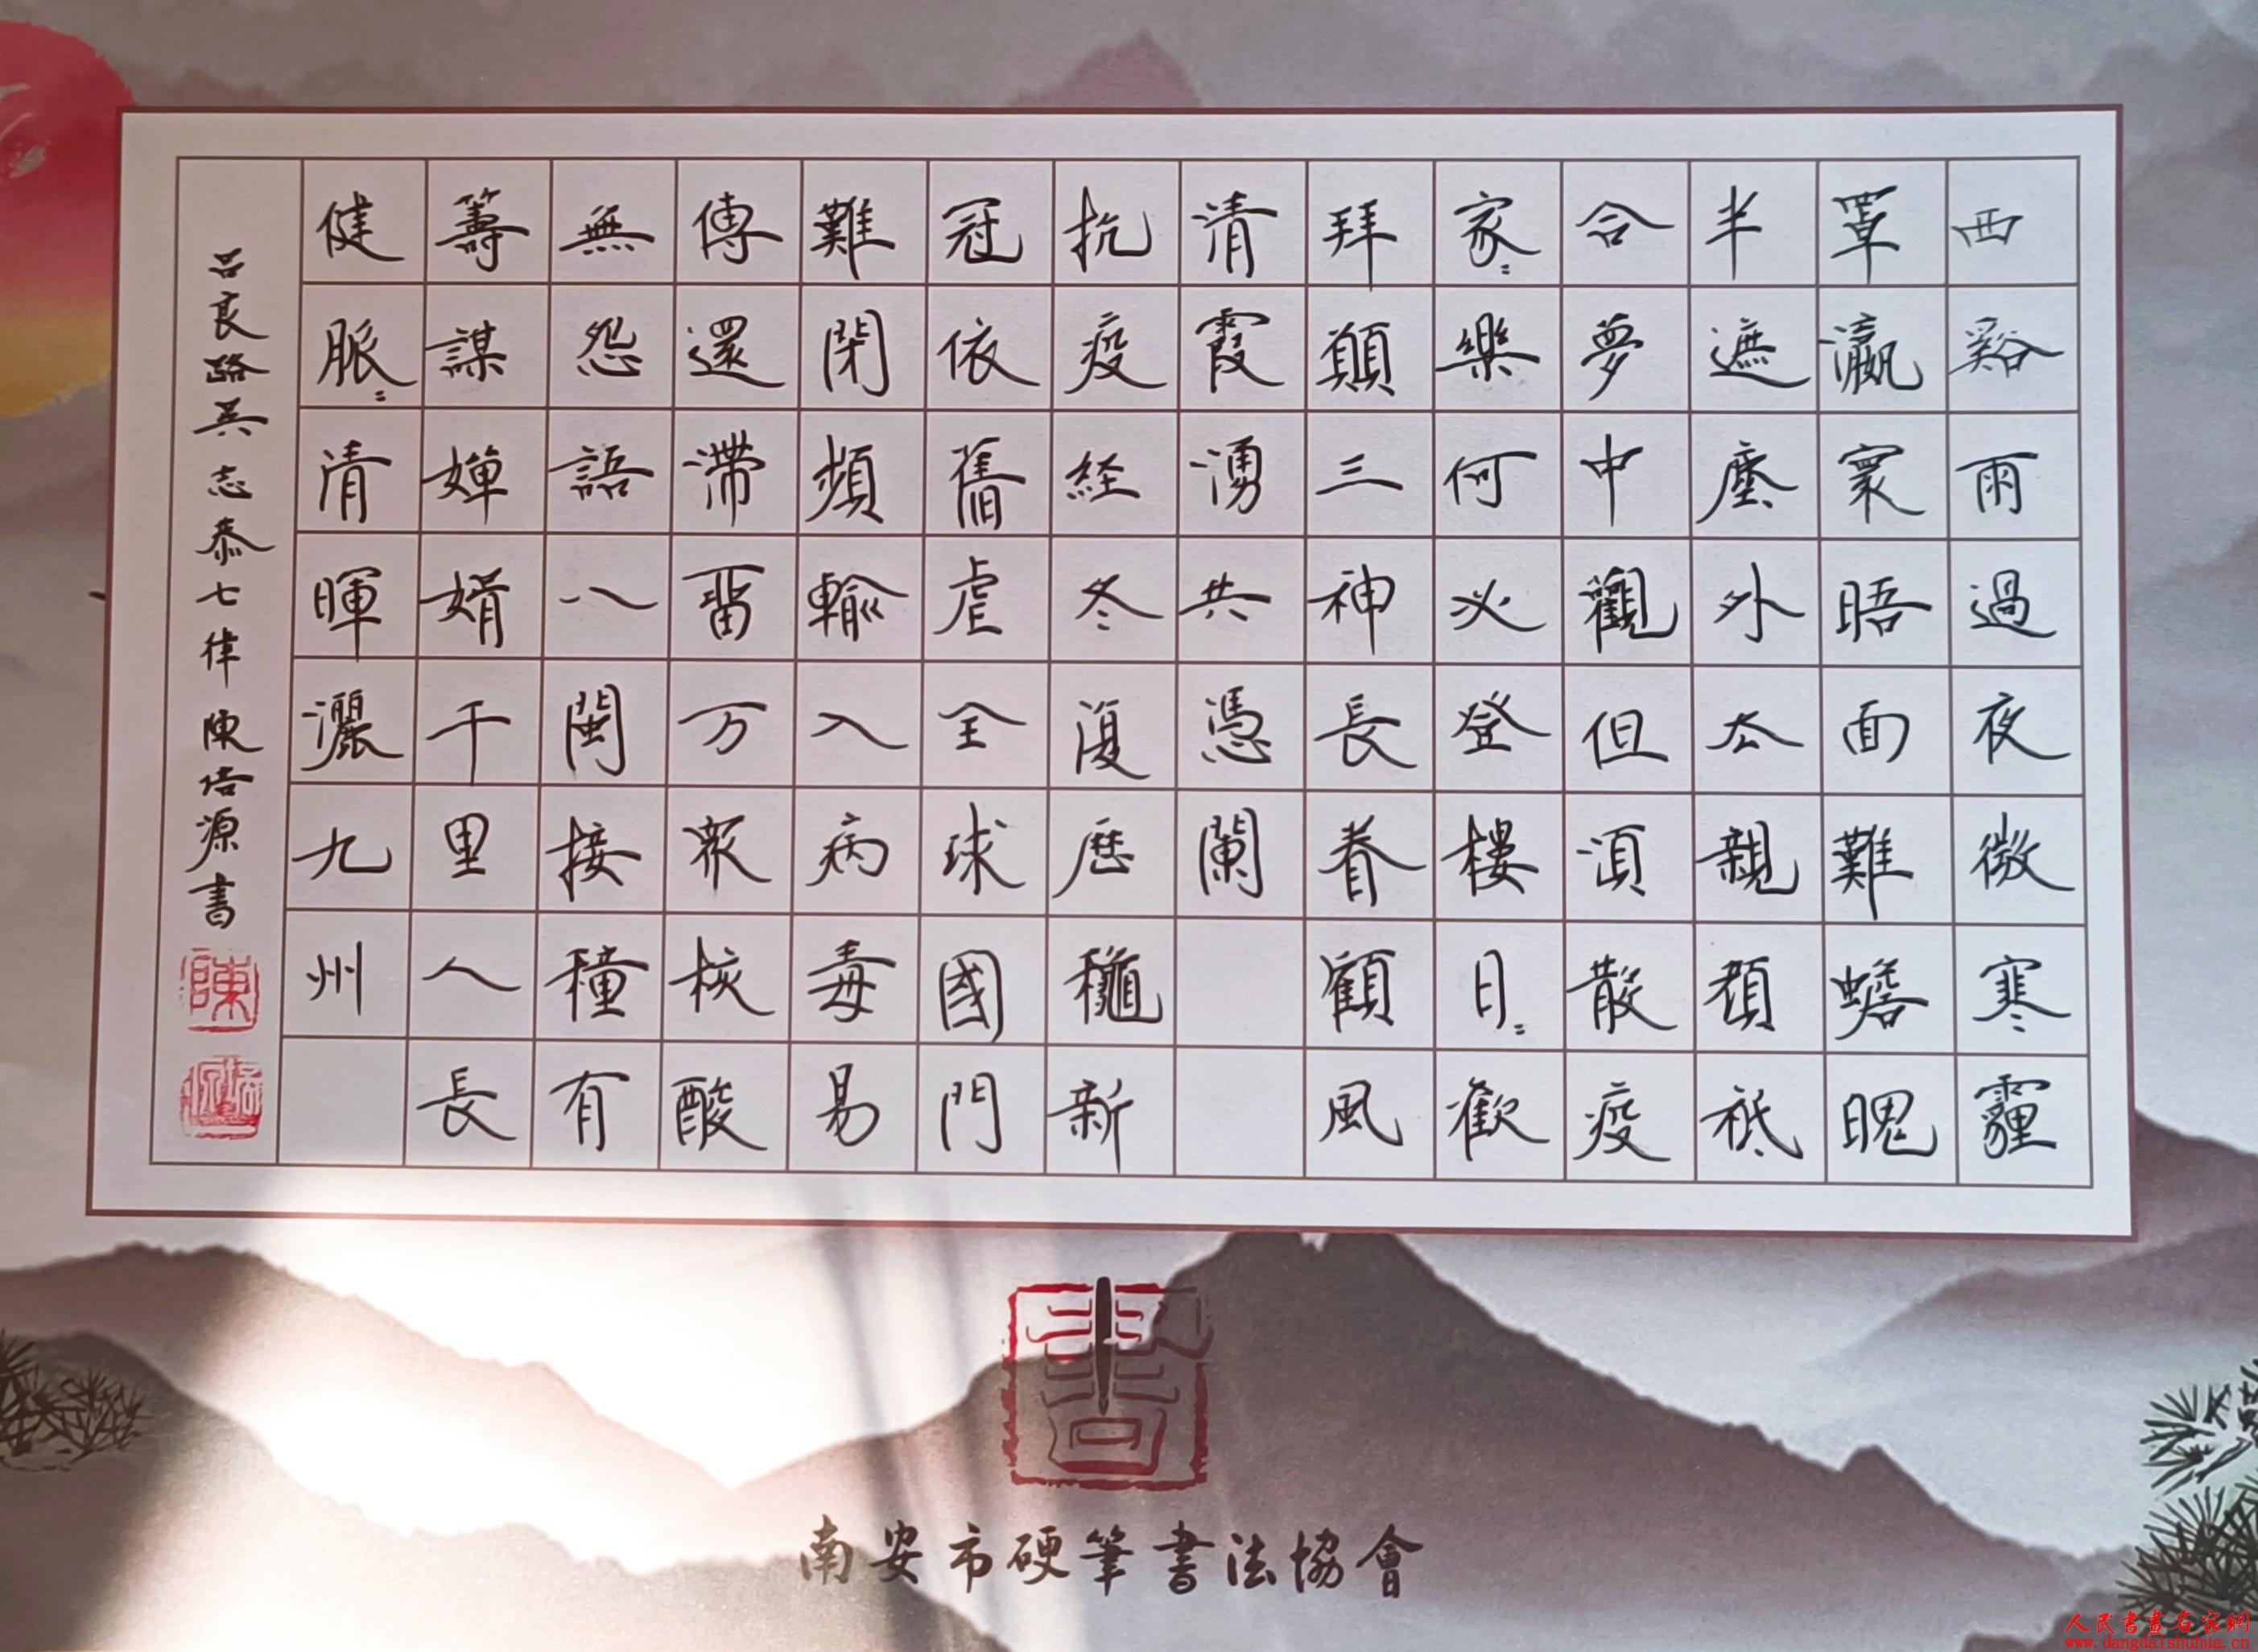 西谿雨過夜微寒霾
罩瀛寰晤面難蟾
半遮塵外太親顏祗
合夢中觀但須散疫
家〻樂何必登樓日〻歡
拜願三神長眷顧風
清霞湧共憑闌
抗疫経冬復歷穐新
冠依舊虐全球國門
難閉頻輸入病毒易
傳還滯留万衆核酸
無怨語八閩接種有
籌謀嬋娟千里人長
健脈〻清暉灑九州
吕良路吳志泰七律陳培源書
陳
南安市硬筆書法協會
人民書畫名家網
www.dangdaishuhua.cn